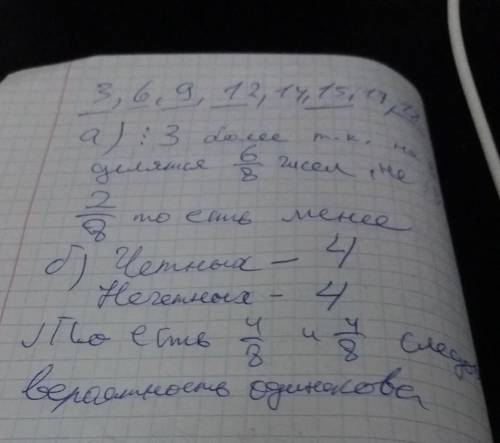 3, 6, 9, 12, 14, 15, 17, 18
а) : 3 более т.к. на
делятся 6/8 чисел, не
2/8 то есть менее
б) Четных – 4
Нечетных – 4
То есть 4/8 и 4/8 след
вероятность одинакова